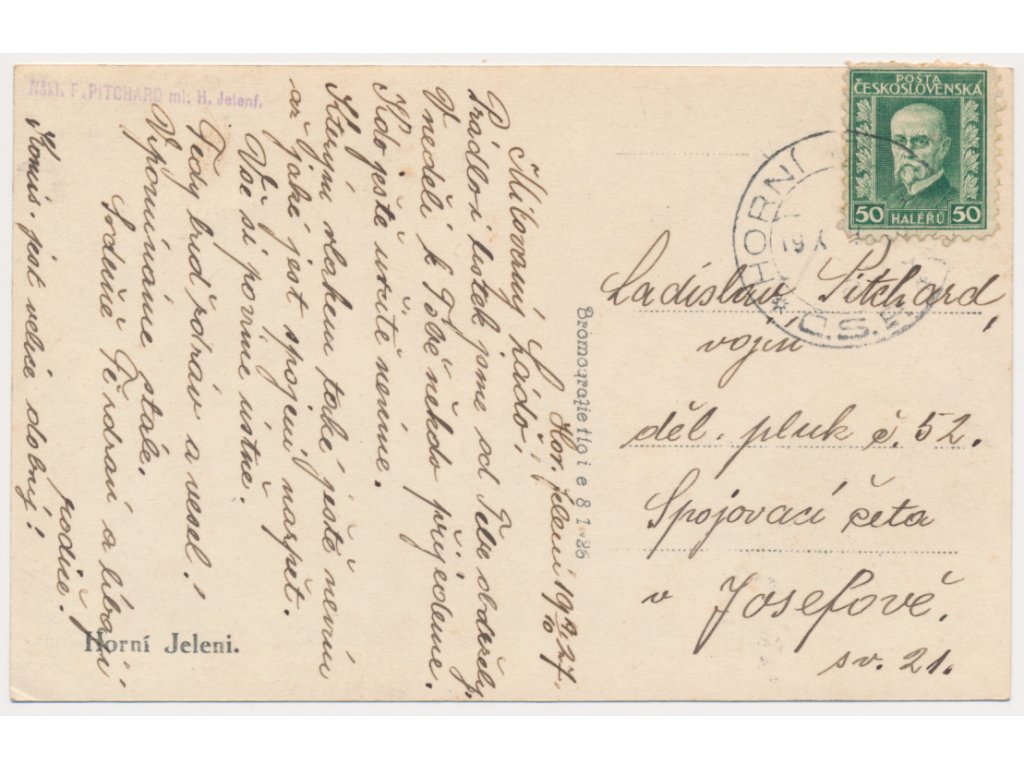 Nákl. F. PITCHARD ml. H. Jelení.
Hor. Jelení 19/10 27.
Milovaný Láďo!
Prádlo i lístek jsme od Tebe obdrželi,
V neděli k Tobě někdo přijedeme.
Kdo ještě určitě nevíme.
Kterým vlakem také ještě nevím
až jaké jest spojení naspět.
Vše si povíme ústně.
Tedy buď zdráv a vesel!
Vzpomínáme stále.
Srdečně Tě zdraví a líbají
rodiče!
jest velice dobrý!
Horní Jeleni.
Bromografie
POSTA
ČESKOSLOVENSKÁ
50 HALÉŘŮ 50
HORNÍ
19 X
Č.S.R.
Ladislav Pitchard,
vojín
děl. pluk č. 52.
Spojovací četa
v Josefově.
sv. 21.